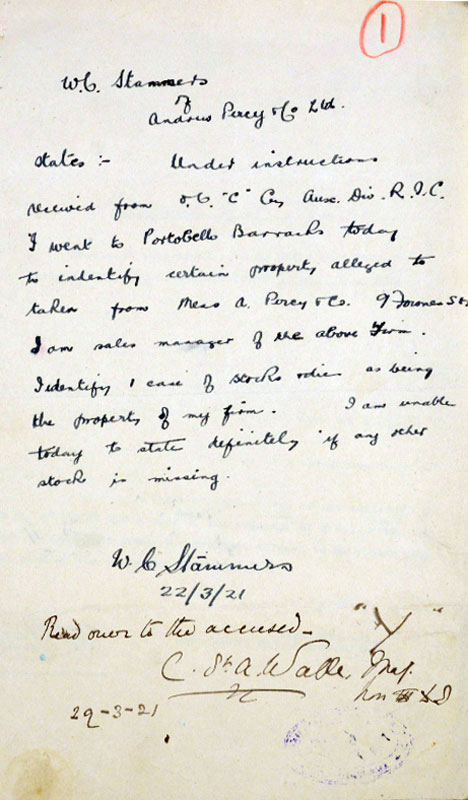 1
W.C. Stammers
of
Andrew Percy & Co Ltd.
states :- Under instructions
received from O.C. "C" Coy Aux. Div. R.I.C.
I went to Portobello Barracks today
to indentify certain property alleged to
taken from Mess A. Percy & Co. 9
I am sales manager of the above Firm.
I identify 1 case of stocks & dies as being
the property of my firm. I am unable
today to state definitely if any other
stock is missing.
W. C Stammers
22/3/21
Read over to the accused - "Y"
C. St. A. Wable, Maj.
29-3-21